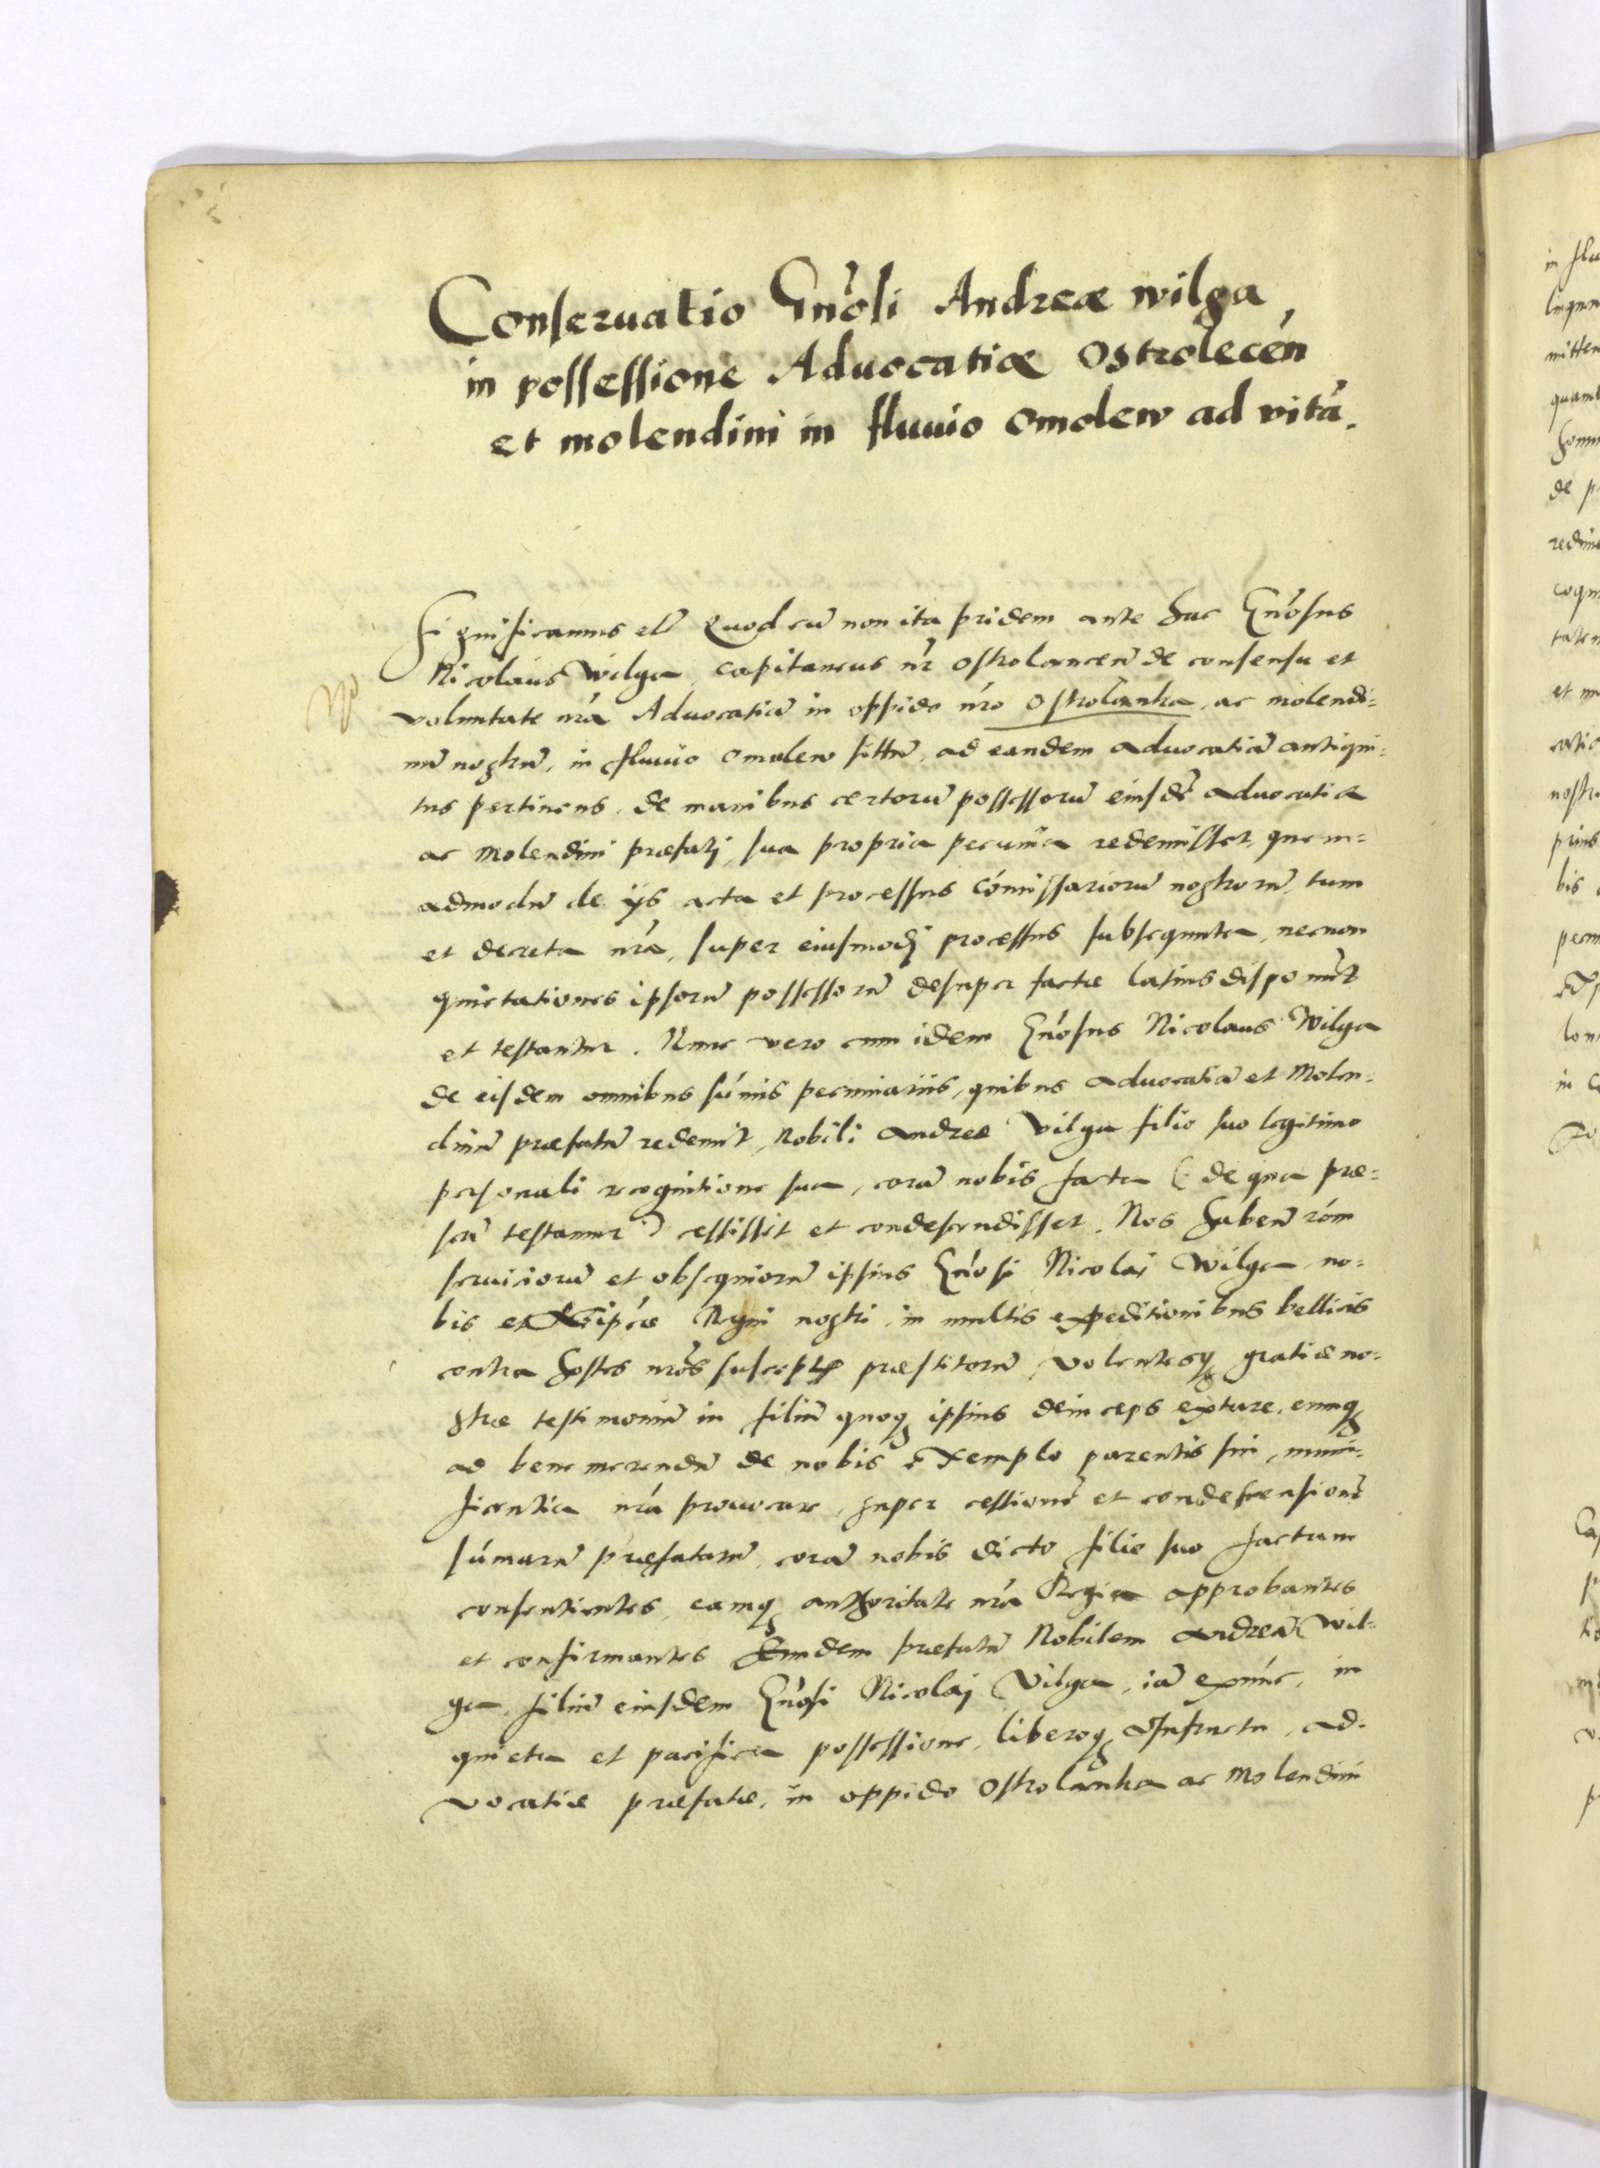 Conseruatio Gn̄osi Andreæ wilga
in possessione Aduocatiæ Ostrolecēn
et molendini in fluuio Omolew ad vitā.
Significamus etc̄ Quod cū non ita pridem ante hac Gn̄osus
Nicolaus Wilga, capitaneus nr̄ Ostrolancen̄ de consensu et
voluntate nr̄a Aduocatiā in oppido nr̄o Ostrolanka, ac molendi-
nū nostrū, in fluuio Omulew sittū, ad eandem aduocatiā antiqui-
tus pertinens, de manibus certorū possessorū eiusdē aduocatiæ
ac Molendini præfatj, sua propria pecunia redemisset, quem-
admodū de ijs acta et processus Cōmissariorū nostrorū, tum
et decreta nr̄a, super eiusmodj processus subsequuta, necnon
quietationes ipsorū possessorū desuper factæ latius disponūt
et testantur. Nunc vero cum idem Gn̄osus Nicolaus Wilga
de eisdem omnibus sūmis pecuniariis, quibus aduocatiā et Molen-
dinū præfatū redemit, Nobili Andreæ Vilga filio suo legitimo
personali recognitione sua, corā nobis facta (: de qua præ-
sen̄ testamur :) cessissit et condescendisset. Nos haben̄ rōm
seruiciorū et obsequiorū ipsius Gn̄osi Nicolai Wilga, no-
bis et Reipcæ Regni nostri, in multis expeditionibus bellicis
contra hostes nr̄os suscept præstitorū, volentesq gratiæ no-
stræ testimoniū in filiū quoq ipsius deinceps extare, eumq
ad bene merendū de nobis exemplo parentis sui, muni-
ficentia nr̄a prouocare, super cessionē et condescensionē
sūmarū præfatarū, corā nobis dicto filio suo factam
consentientes, eamq authoritate nr̄a Regia approbantes
et confirmantes Eundem præfatū Nobilem Andreā Wil-
ga, filiū eiusdem Gn̄osi Nicolaj Vilga, iā exnūc, in
quieta et pacifica possessione, liberoq usufructu, ad-
vocatiæ præfatæ, in oppido Ostrolanka ac Molendini